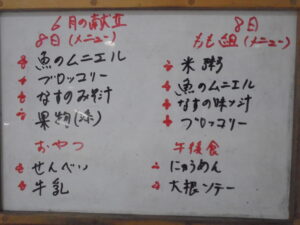 6月の献立
8日(メニュー)
魚のムニエル
ブロッコリー
なすのみそ汁
果物(添)
おやつ
せんべい
牛乳
8日
もも組(メニュー)
米粥
魚のムニエル
なすの味ソ汁
ブロッコリー
午後食
にゅうめん
大根ソテー